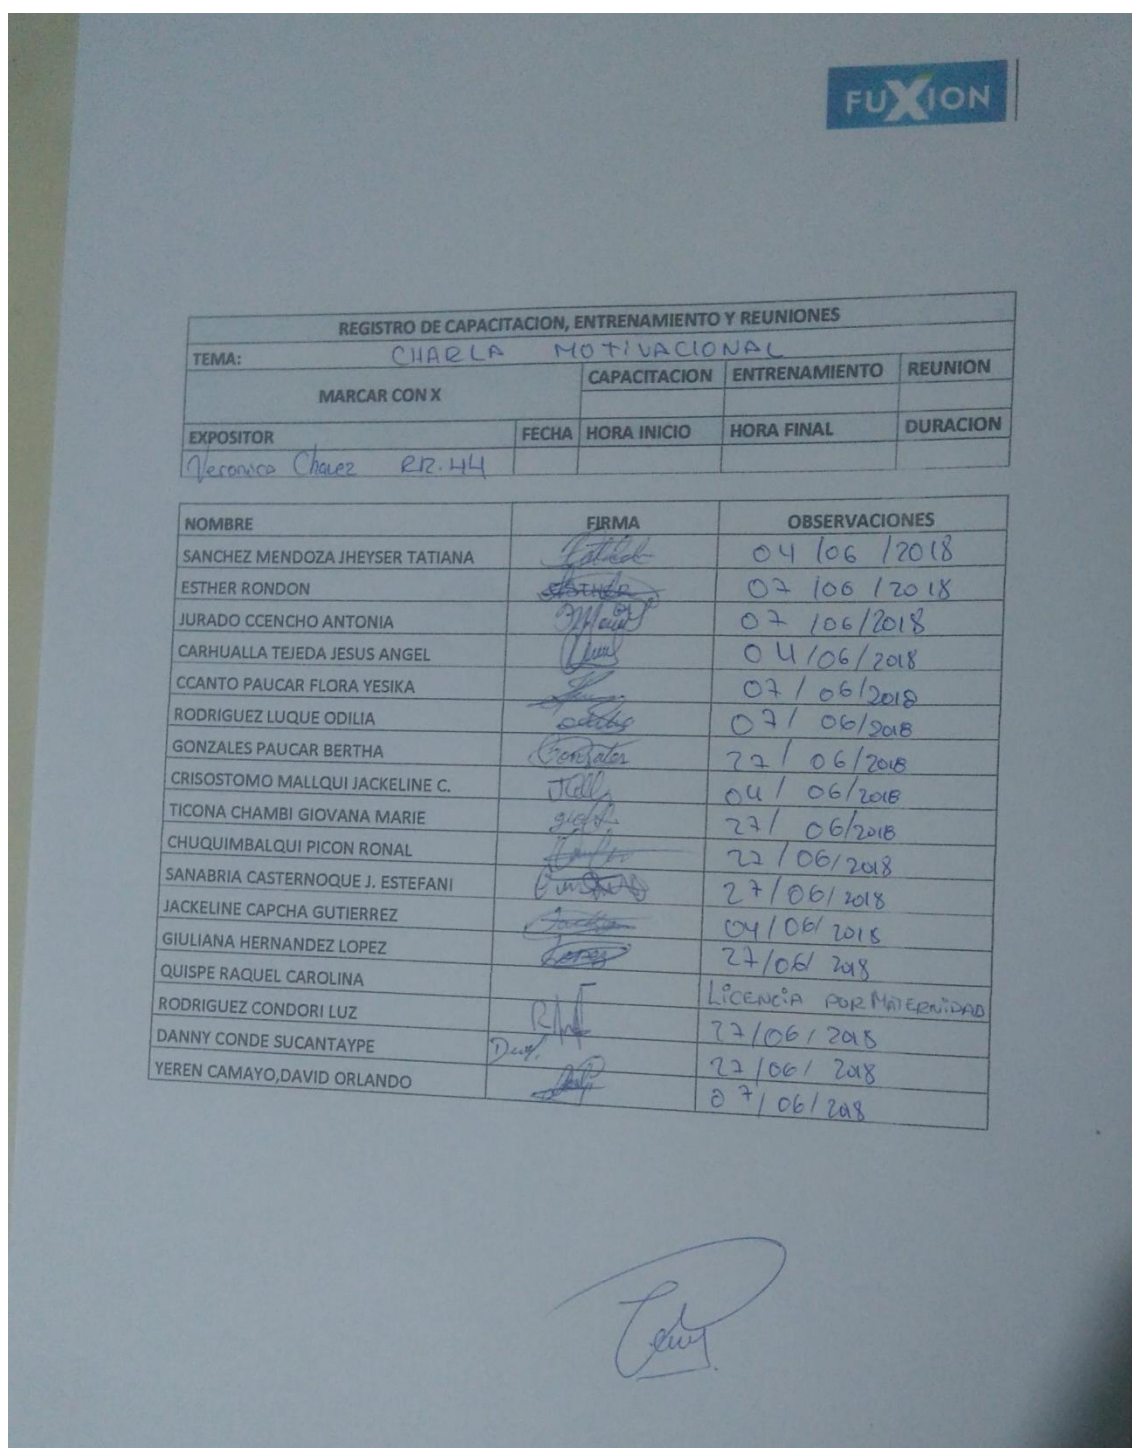 FUXION
REGISTRO DE CAPACITACION, ENTRENAMIENTO Y REUNIONES
TEMA: CHARLA MOTIVACIONAL
MARCAR CON X CAPACITACION ENTRENAMIENTO REUNION
EXPOSITOR FECHA HORA INICIO HORA FINAL DURACION
Veronica Chavez RR.HH
NOMBRE FIRMA OBSERVACIONES
SANCHEZ MENDOZA JHEYSER TATIANA 04/06/2018
ESTHER RONDON ESTHER 07/06/2018
JURADO CCENCHO ANTONIA 07/06/2018
CARHUALLA TEJEDA JESUS ANGEL 04/06/2018
CCANTO PAUCAR FLORA YESIKA 07/06/2018
RODRIGUEZ LUQUE ODILIA 07/06/2018
GONZALES PAUCAR BERTHA Gonzales 27/06/2018
CRISOSTOMO MALLQUI JACKELINE C. 04/06/2018
TICONA CHAMBI GIOVANA MARIE 27/06/2018
CHUQUIMBALQUI PICON RONAL 27/06/2018
SANABRIA CASTERNOQUE J. ESTEFANI 27/06/2018
JACKELINE CAPCHA GUTIERREZ 04/06/2018
GIULIANA HERNANDEZ LOPEZ 27/06/2018
QUISPE RAQUEL CAROLINA LICENCIA POR MATERNIDAD
RODRIGUEZ CONDORI LUZ 27/06/2018
DANNY CONDE SUCANTAYPE 27/06/2018
YEREN CAMAYO,DAVID ORLANDO 07/06/2018